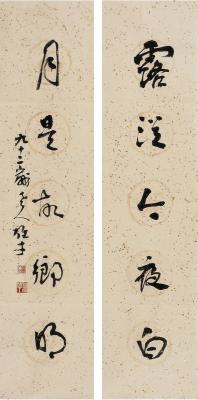 露從今夜白
月是故鄉明
九十二齡老人雄才